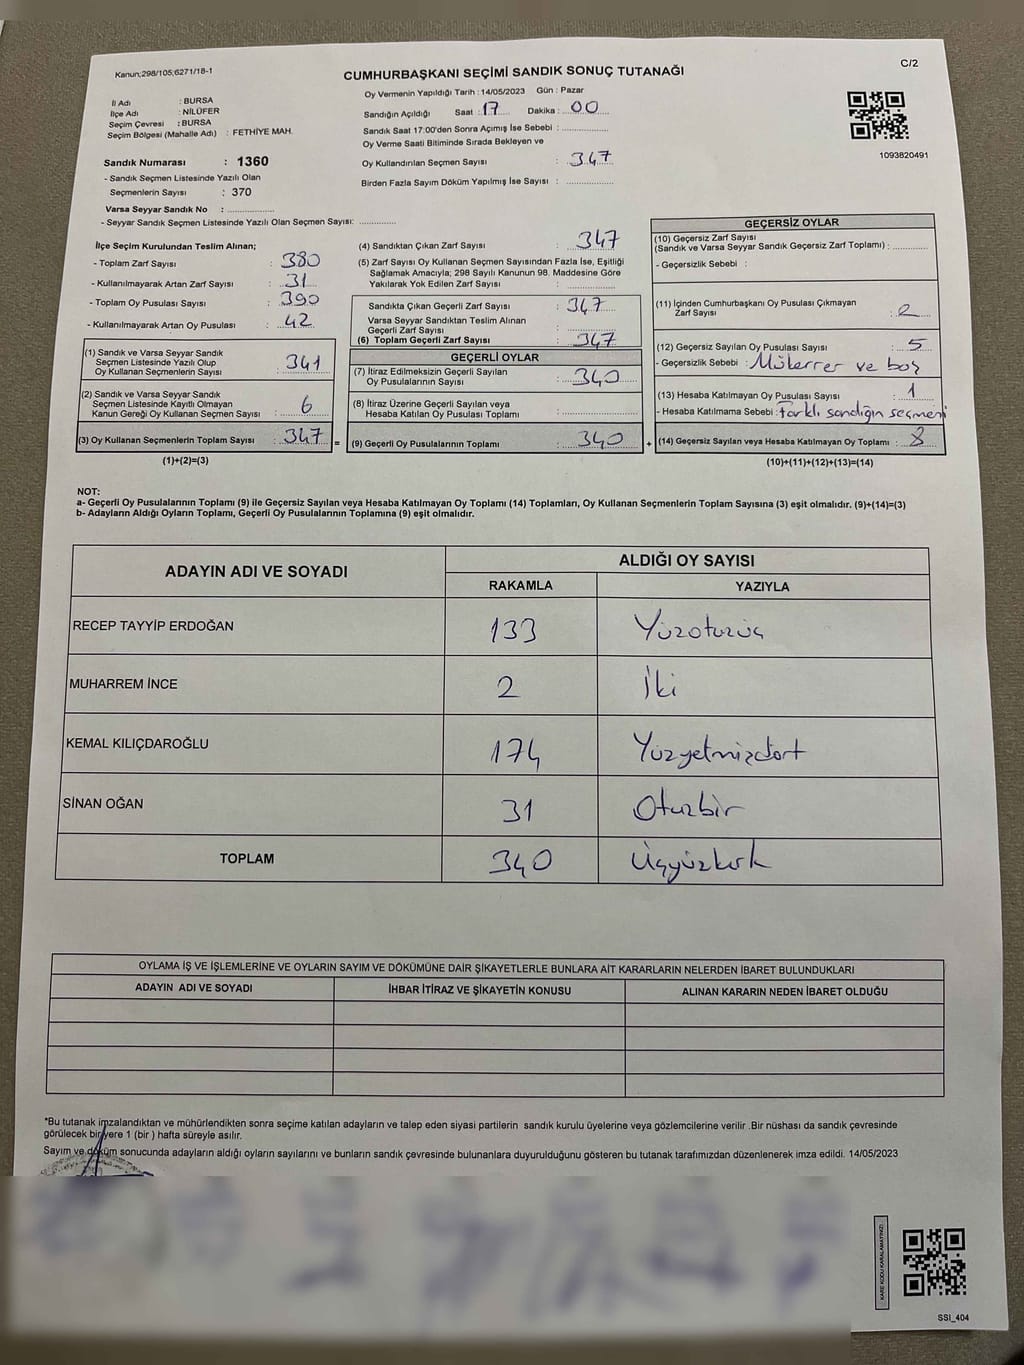 Kanun;298/105;6271/18-1
C/2
CUMHURBAŞKANI SEÇİMİ SANDIK SONUÇ TUTANAĞI
İl Adı : BURSA
İlçe Adı : NİLÜFER
Seçim Çevresi : BURSA
Seçim Bölgesi (Mahalle Adı) : FETHİYE MAH.
Sandık Numarası : 1360
- Sandık Seçmen Listesinde Yazılı Olan
Seçmenlerin Sayısı : 370
Varsa Seyyar Sandık No : ................
- Seyyar Sandık Seçmen Listesinde Yazılı Olan Seçmen Sayısı: ............
Oy Vermenin Yapıldığı Tarih : 14/05/2023 Gün : Pazar
Sandığın Açıldığı Saat : 17 Dakika : 00
Sandık Saat 17:00'den Sonra Açımış İse Sebebi : ................
Oy Verme Saati Bitiminde Sırada Bekleyen ve
Oy Kullandırılan Seçmen Sayısı : 347
Birden Fazla Sayım Döküm Yapılmış İse Sayısı : ................
1093820491
İlçe Seçim Kurulundan Teslim Alınan;
- Toplam Zarf Sayısı : 380
- Kullanılmayarak Artan Zarf Sayısı : 31
- Toplam Oy Pusulası Sayısı : 390
- Kullanılmayarak Artan Oy Pusulası : 42
(1) Sandık ve Varsa Seyyar Sandık
Seçmen Listesinde Yazılı Olup
Oy Kullanan Seçmenlerin Sayısı : 341
(2) Sandık ve Varsa Seyyar Sandık
Seçmen Listesinde Kayıtlı Olmayan
Kanun Gereği Oy Kullanan Seçmen Sayısı : 6
(3) Oy Kullanan Seçmenlerin Toplam Sayısı : 347 =
(1)+(2)=(3)
(4) Sandıktan Çıkan Zarf Sayısı : 347
(5) Zarf Sayısı Oy Kullanan Seçmen Sayısından Fazla İse, Eşitliği
Sağlamak Amacıyla; 298 Sayılı Kanunun 98. Maddesine Göre
Yakılarak Yok Edilen Zarf Sayısı : ................
Sandıkta Çıkan Geçerli Zarf Sayısı : 347
Varsa Seyyar Sandıktan Teslim Alınan
Geçerli Zarf Sayısı : ................
(6) Toplam Geçerli Zarf Sayısı : 347
GEÇERLİ OYLAR
(7) İtiraz Edilmeksizin Geçerli Sayılan
Oy Pusulalarının Sayısı : 340
(8) İtiraz Üzerine Geçerli Sayılan veya
Hesaba Katılan Oy Pusulası Toplamı : ................
(9) Geçerli Oy Pusulalarının Toplamı : 340 +
GEÇERSİZ OYLAR
(10) Geçersiz Zarf Sayısı
(Sandık ve Varsa Seyyar Sandık Geçersiz Zarf Toplamı) : ............
- Geçersizlik Sebebi :
(11) İçinden Cumhurbaşkanı Oy Pusulası Çıkmayan
Zarf Sayısı : 2
(12) Geçersiz Sayılan Oy Pusulası Sayısı : 5
- Geçersizlik Sebebi : Mükerrer ve boş
(13) Hesaba Katılmayan Oy Pusulası Sayısı : 1
- Hesaba Katılmama Sebebi : farklı sandığın seçmeni
(14) Geçersiz Sayılan veya Hesaba Katılmayan Oy Toplamı : 8
(10)+(11)+(12)+(13)=(14)
NOT:
a- Geçerli Oy Pusulalarının Toplamı (9) ile Geçersiz Sayılan veya Hesaba Katılmayan Oy Toplamı (14) Toplamları, Oy Kullanan Seçmenlerin Toplam Sayısına (3) eşit olmalıdır. (9)+(14)=(3)
b- Adayların Aldığı Oyların Toplamı, Geçerli Oy Pusulalarının Toplamına (9) eşit olmalıdır.
ADAYIN ADI VE SOYADI ALDIĞI OY SAYISI
RAKAMLA YAZIYLA
RECEP TAYYİP ERDOĞAN 133 Yüzotuzüç
MUHARREM İNCE 2 İki
KEMAL KILIÇDAROĞLU 174 Yüzyetmişdört
SİNAN OĞAN 31 Otuzbir
TOPLAM 340 Üçyüzkırk
OYLAMA İŞ VE İŞLEMLERİNE VE OYLARIN SAYIM VE DÖKÜMÜNE DAİR ŞİKAYETLERLE BUNLARA AİT KARARLARIN NELERDEN İBARET BULUNDUKLARI
ADAYIN ADI VE SOYADI İHBAR İTİRAZ VE ŞİKAYETİN KONUSU ALINAN KARARIN NEDEN İBARET OLDUĞU
*Bu tutanak imzalandıktan ve mühürlendikten sonra seçime katılan adayların ve talep eden siyasi partilerin sandık kurulu üyelerine veya gözlemcilerine verilir .Bir nüshası da sandık çevresinde
görülecek bir yere 1 (bir ) hafta süreyle asılır.
Sayım ve döküm sonucunda adayların aldığı oyların sayılarını ve bunların sandık çevresinde bulunanlara duyurulduğunu gösteren bu tutanak tarafımızdan düzenlenerek imza edildi. 14/05/2023
KARE KODU KARALAMAYINIZ!
SSI_404